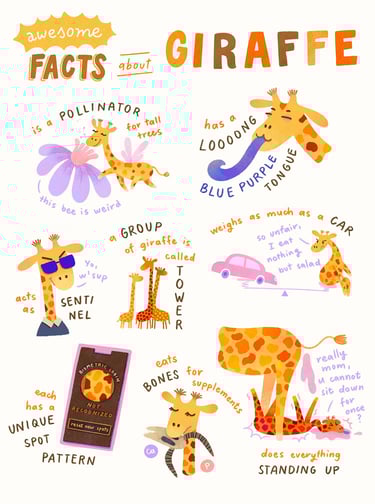 awesome
FACTS about GIRAFFE
is a POLLINATOR
for tall
trees
this bee is weird
has a
LOOOONG
BLUE PURPLE
TONGUE
Yo,
w'sup
acts
as
SENTI
NEL
a GROUP
of giraffe is
called
TOWER
weighs as much as a CAR
so unfair,
I eat
nothing
but salad
BIOMETRIC LOGIN
NOT
RECOGNIZED
reset new spots
each
has a
UNIQUE
SPOT
PATTERN
eats
BONES for
supplements
Ca
P
really
mom,
u cannot
sit down
for
once
?
does everything
STANDING UP